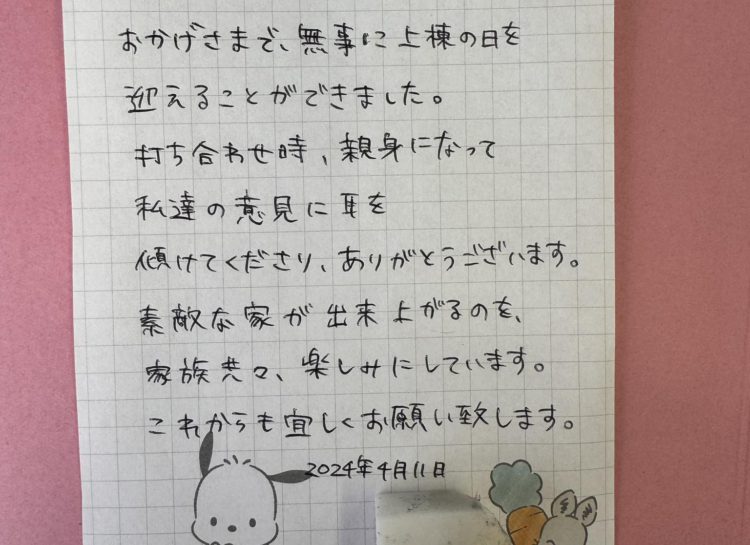 おかげさまで、無事に上棟の日を
迎えることができました。
打ち合わせ時、親身になって
私達の意見に耳を
傾けてくださり、ありがとうございます。
素敵な家が出来上がるのを、
家族共々、楽しみにしています。
これからも宜しくお願い致します。
2024年4月11日